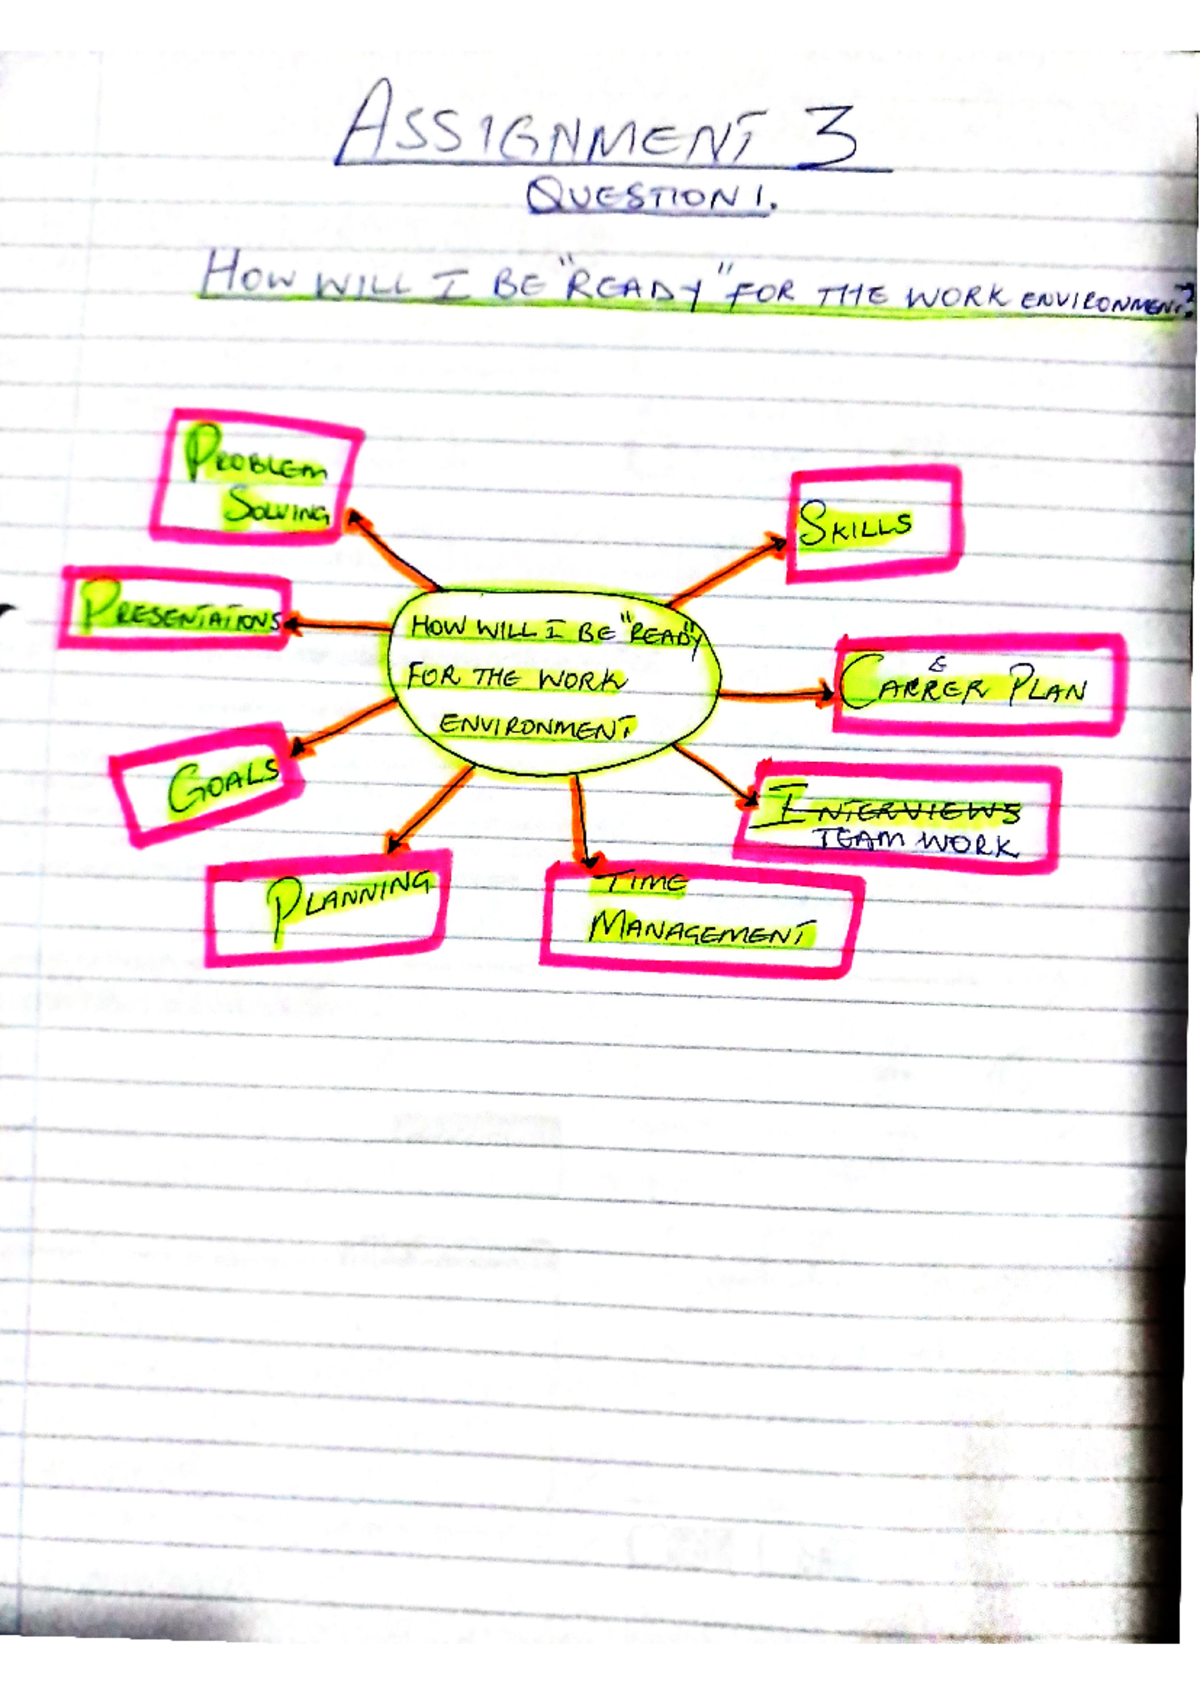 ASSIGNMENT 3
QUESTION 1.
HOW WILL I BE "READY" FOR THE WORK ENVIRONMENT?
PROBLEM
SOLVING
SKILLS
PRESENTATIONS
HOW WILL I BE "READY"
FOR THE WORK
ENVIRONMENT.
CARRER PLAN
E
GOALS
INTERVIEWS
TEAM WORK
PLANNING
TIME
MANAGEMENT